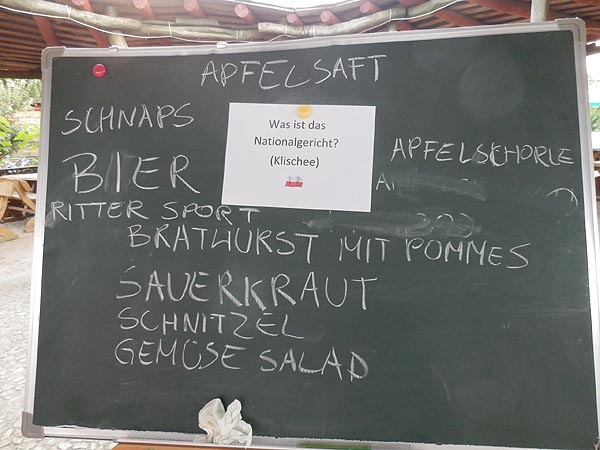 APFELSAFT
SCHNAPS
Was ist das
Nationalgericht?
(Klischee)
APFELSCHORLE
BIER
RITTER SPORT
BRATWURST MIT POMMES
SAUERKRAUT
SCHNITZEL
GEMÜSE SALAD